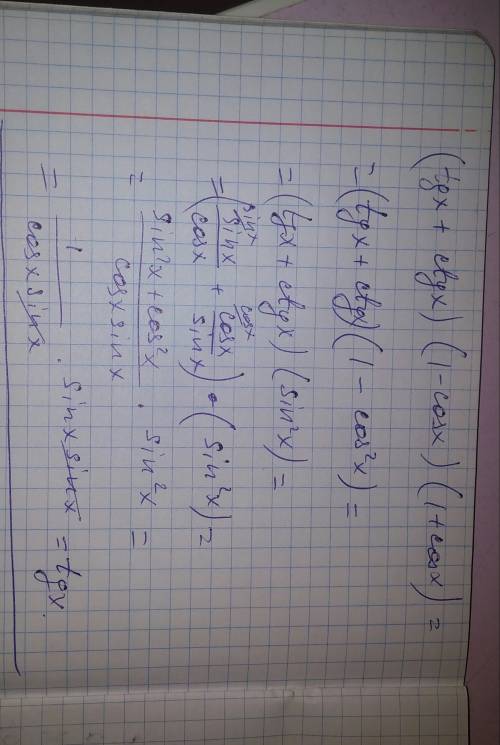 (tgx + ctgx) (1 - cosx) (1 + cosx) =
= (tgx + ctgx) (1 - cos²x) =
= (tgx + ctgx) (sin²x) =
= (sinx/cosx + cosx/sinx) · (sin²x) =
sinx cosx
= (sin²x + cos²x)/(cosx sinx) · sin²x =
= 1/(cosx sinx) · sinx sinx = tgx.